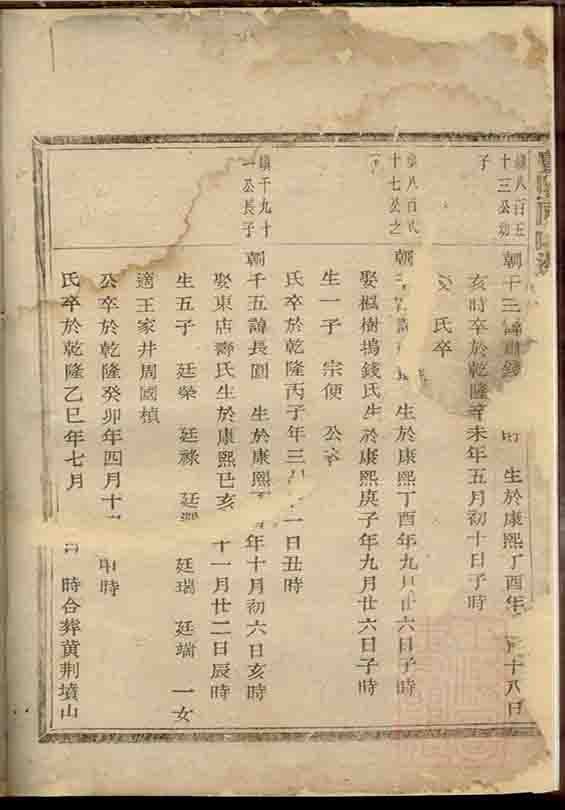 十三公幼
子
朝千三 生於康熙丁酉年 十八日
亥時卒於乾隆辛未年五月初十日子時
氏卒
八百八
十七公之
朝 生於康熙丁酉年九月廿六日子時
娶楓樹塢錢氏生於康熙庚子年九月廿六日子時
生一子 宗便 公卒
氏卒於乾隆丙子年三 一日丑時
鎮千九十
一公長子
朝千五諱長 生於康熙 年十月初六日亥時
娶東店壽氏生於康熙己亥 十一月廿二日辰時
生五子 廷榮 廷祿 廷 廷瑞 廷端 一女
適王家井周國楨
公卒於乾隆癸卯年四月十 申時
氏卒於乾隆乙巳年七月 日 時合葬黃荊墳山